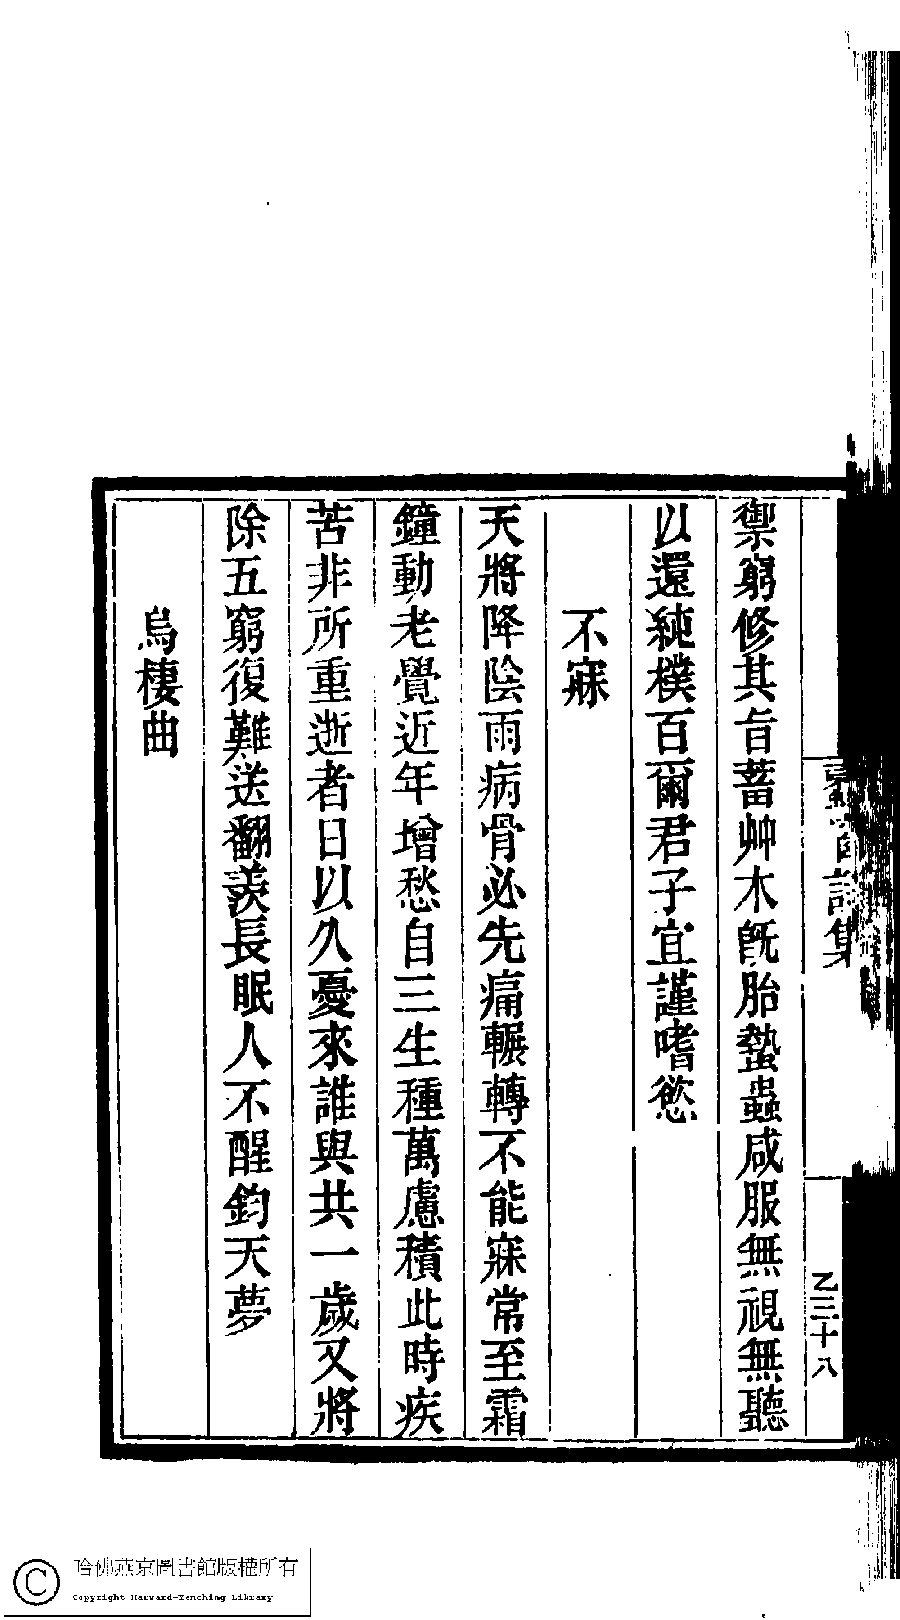 禦窮修其旨蓄艸木旣胎蟄蟲咸服無視無聽
以還純樸百爾君子宜謹嗜慾
不寐
天將降陰雨病骨必先痛輾轉不能寐常至霜
鐘動老覺近年增愁自三生種萬慮積此時疾
苦非所重逝者日以久憂來誰與共一歲又將
除五窮復難送翻羡長眠人不醒鈞天夢
烏棲曲
詩集
乙三十八
哈佛燕京圖書館版權所有
Copyright Harvard-Yenching Library